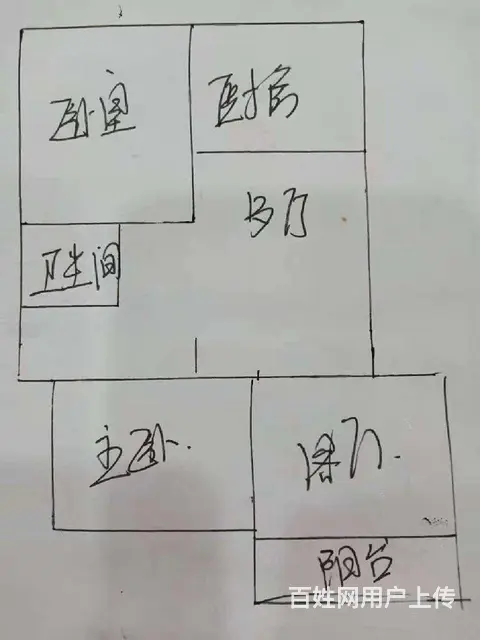 卧室
厨房
厅
卫生间
主卧
客厅
阳台
百姓网用户上传